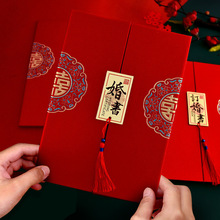 婚書
訂婚書